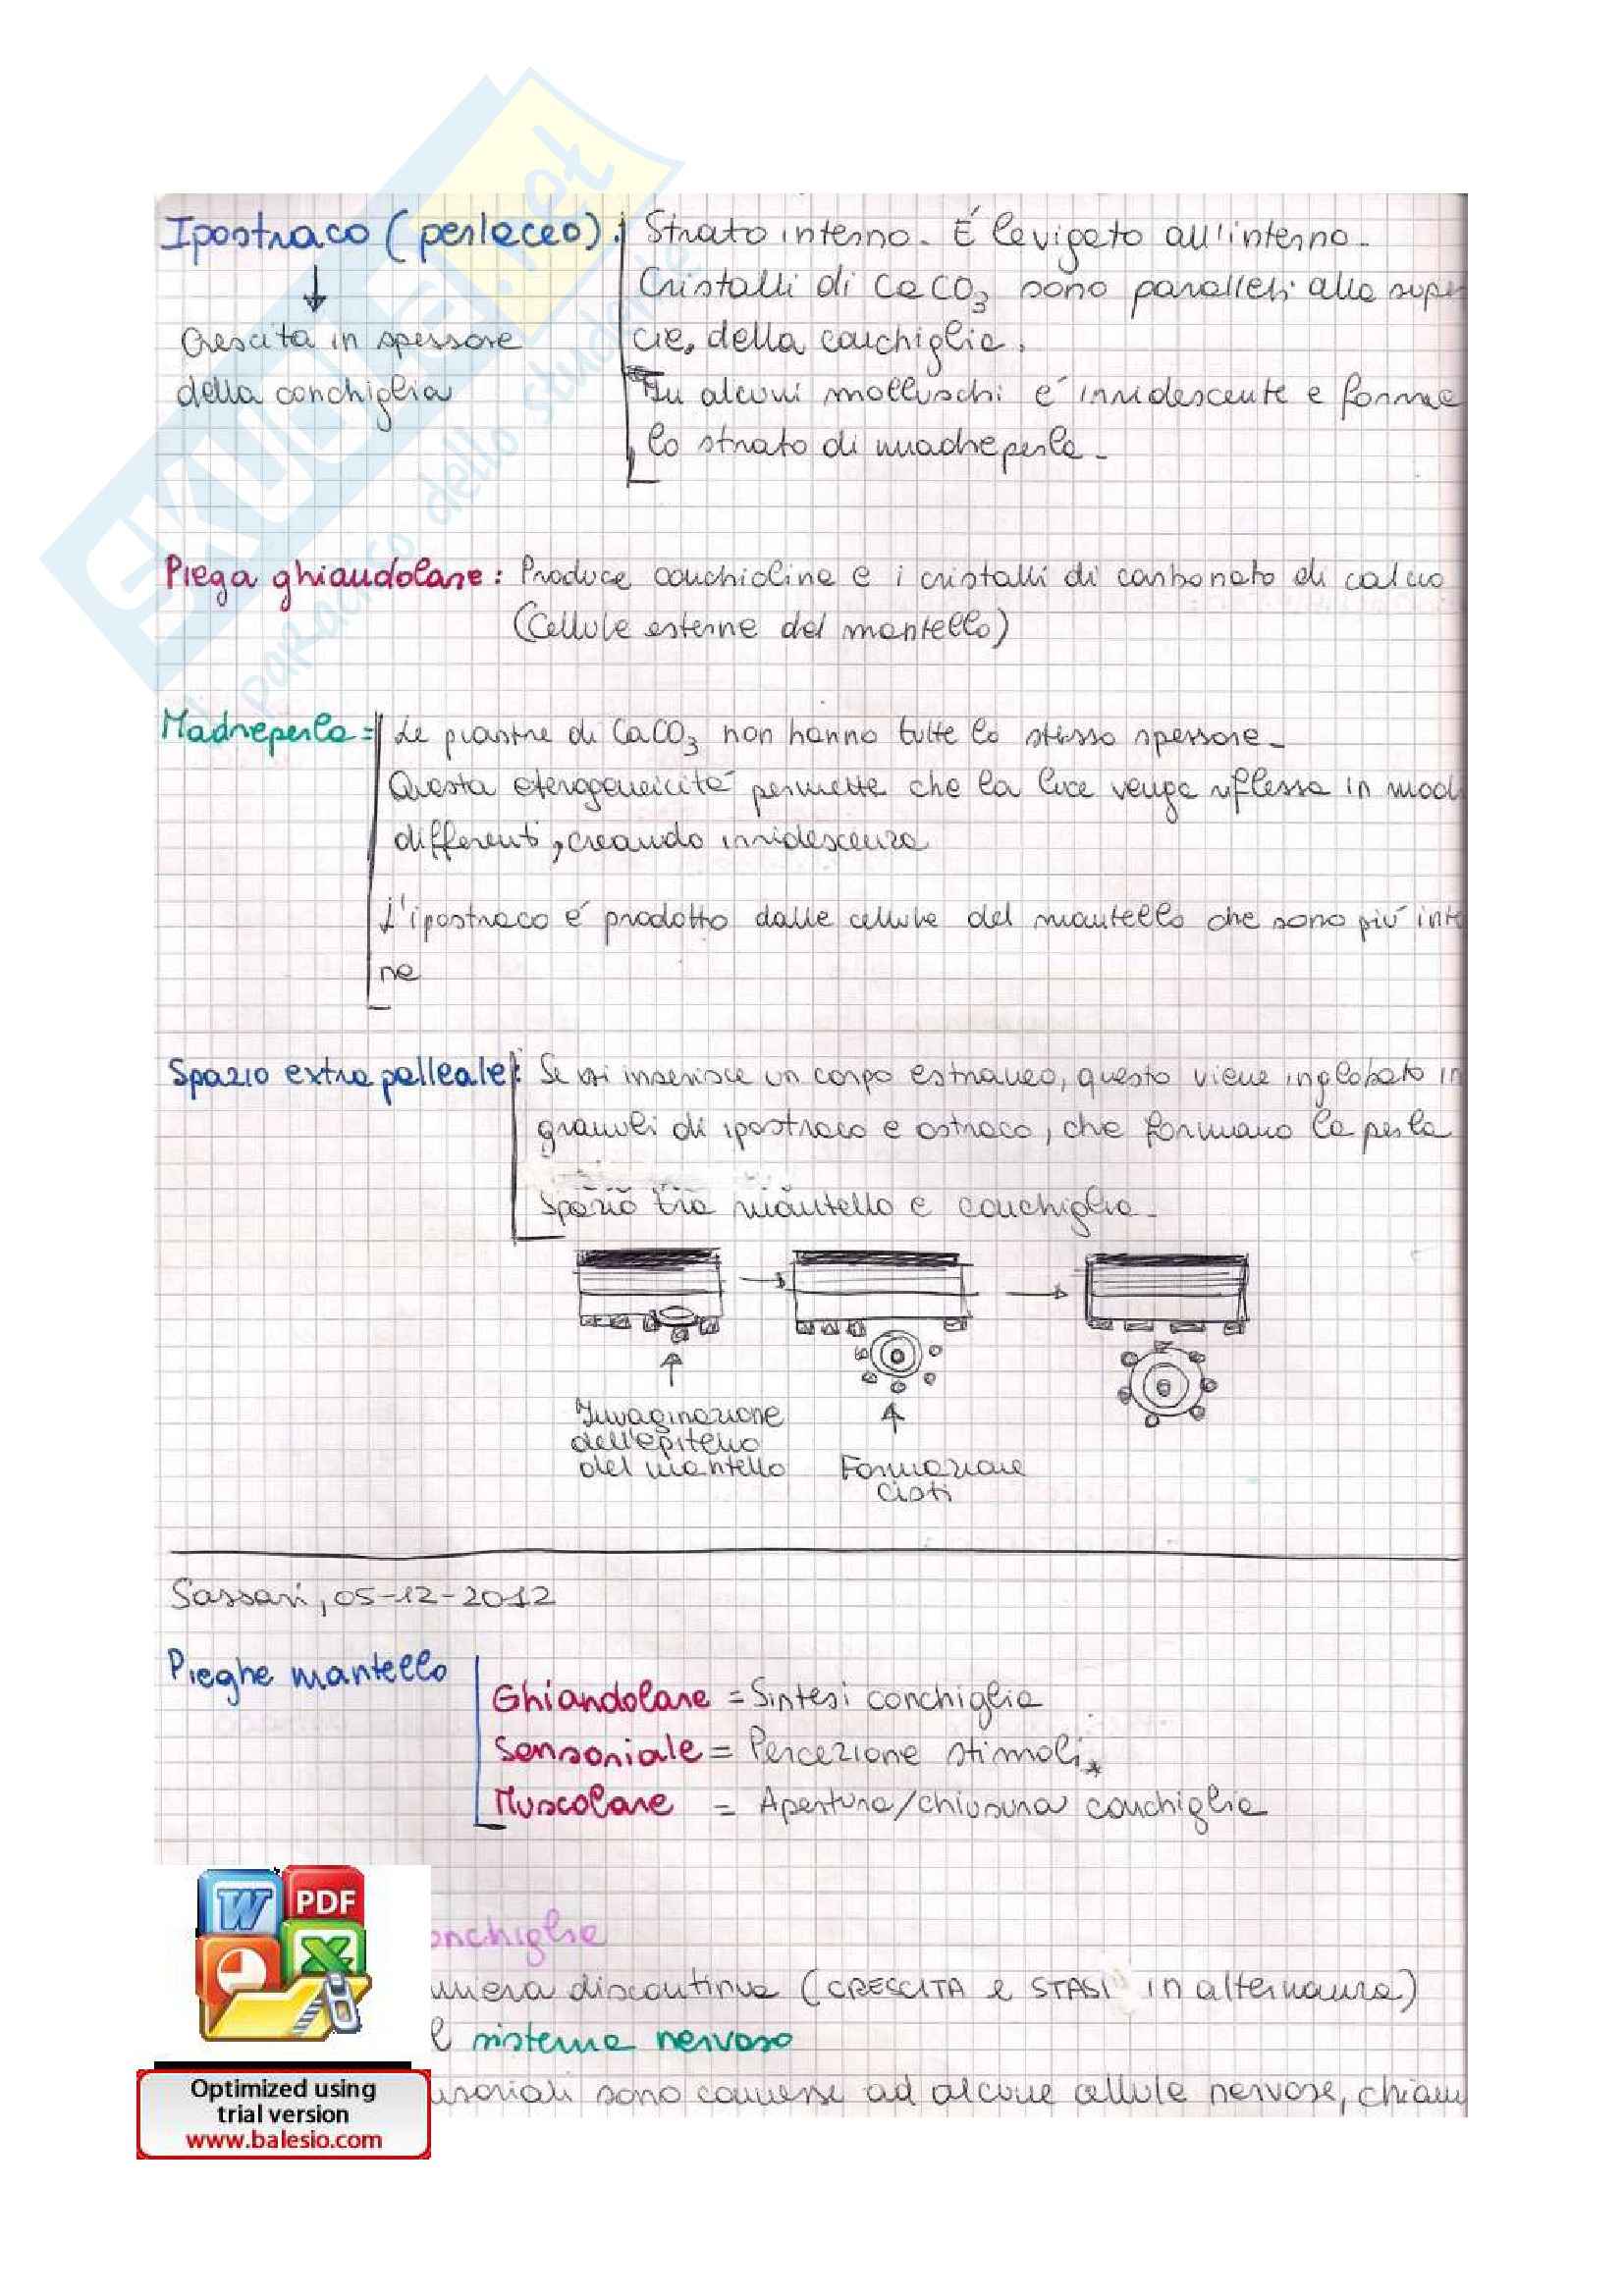 Ipostraco (perlaceo): Strato interno. É levigato all'interno.
Cristalli di CaCO3 sono paralleli alla super
Crescita in spessore
cie, della conchiglia.
della conchiglia
In alcuni molluschi é irridescente e forma
lo strato di madreperla.
Piega ghiandolare: Produce conchiolina e i cristalli di carbonato di calcio
(Cellule esterne del mantello)
Madreperla = Le piastre di CaCO3 non hanno tutte lo stesso spessore.
Questa eterogeneicità permette che la luce venga riflessa in modi
differenti, creando irridescenza
L'ipostraco é prodotto dalle cellule del mantello che sono più inte
ne
Spazio extra palleale: Se si inserisce un corpo estraneo, questo viene inglobato in
granuli di ipostraco e ostraco, che formano la perla
Spazio tra mantello e conchiglia.
Invaginazione
dell'epitelio
del mantello
Formazione
cisti
Sassari, 05-12-2012
Pieghe mantello
Ghiandolare = Sintesi conchiglia
Sensoriale = Percezione stimoli*
Muscolare = Apertura/chiusura conchiglia
onchiglia
niera discontinua (CRESCITA e STASI in alternanza)
l sistema nervoso
nsoriali sono connesse ad alcune cellule nervose, chiam
SKUOLA.net
il paradiso dello studente
W
PDF
X
Optimized using
trial version
www.balesio.com